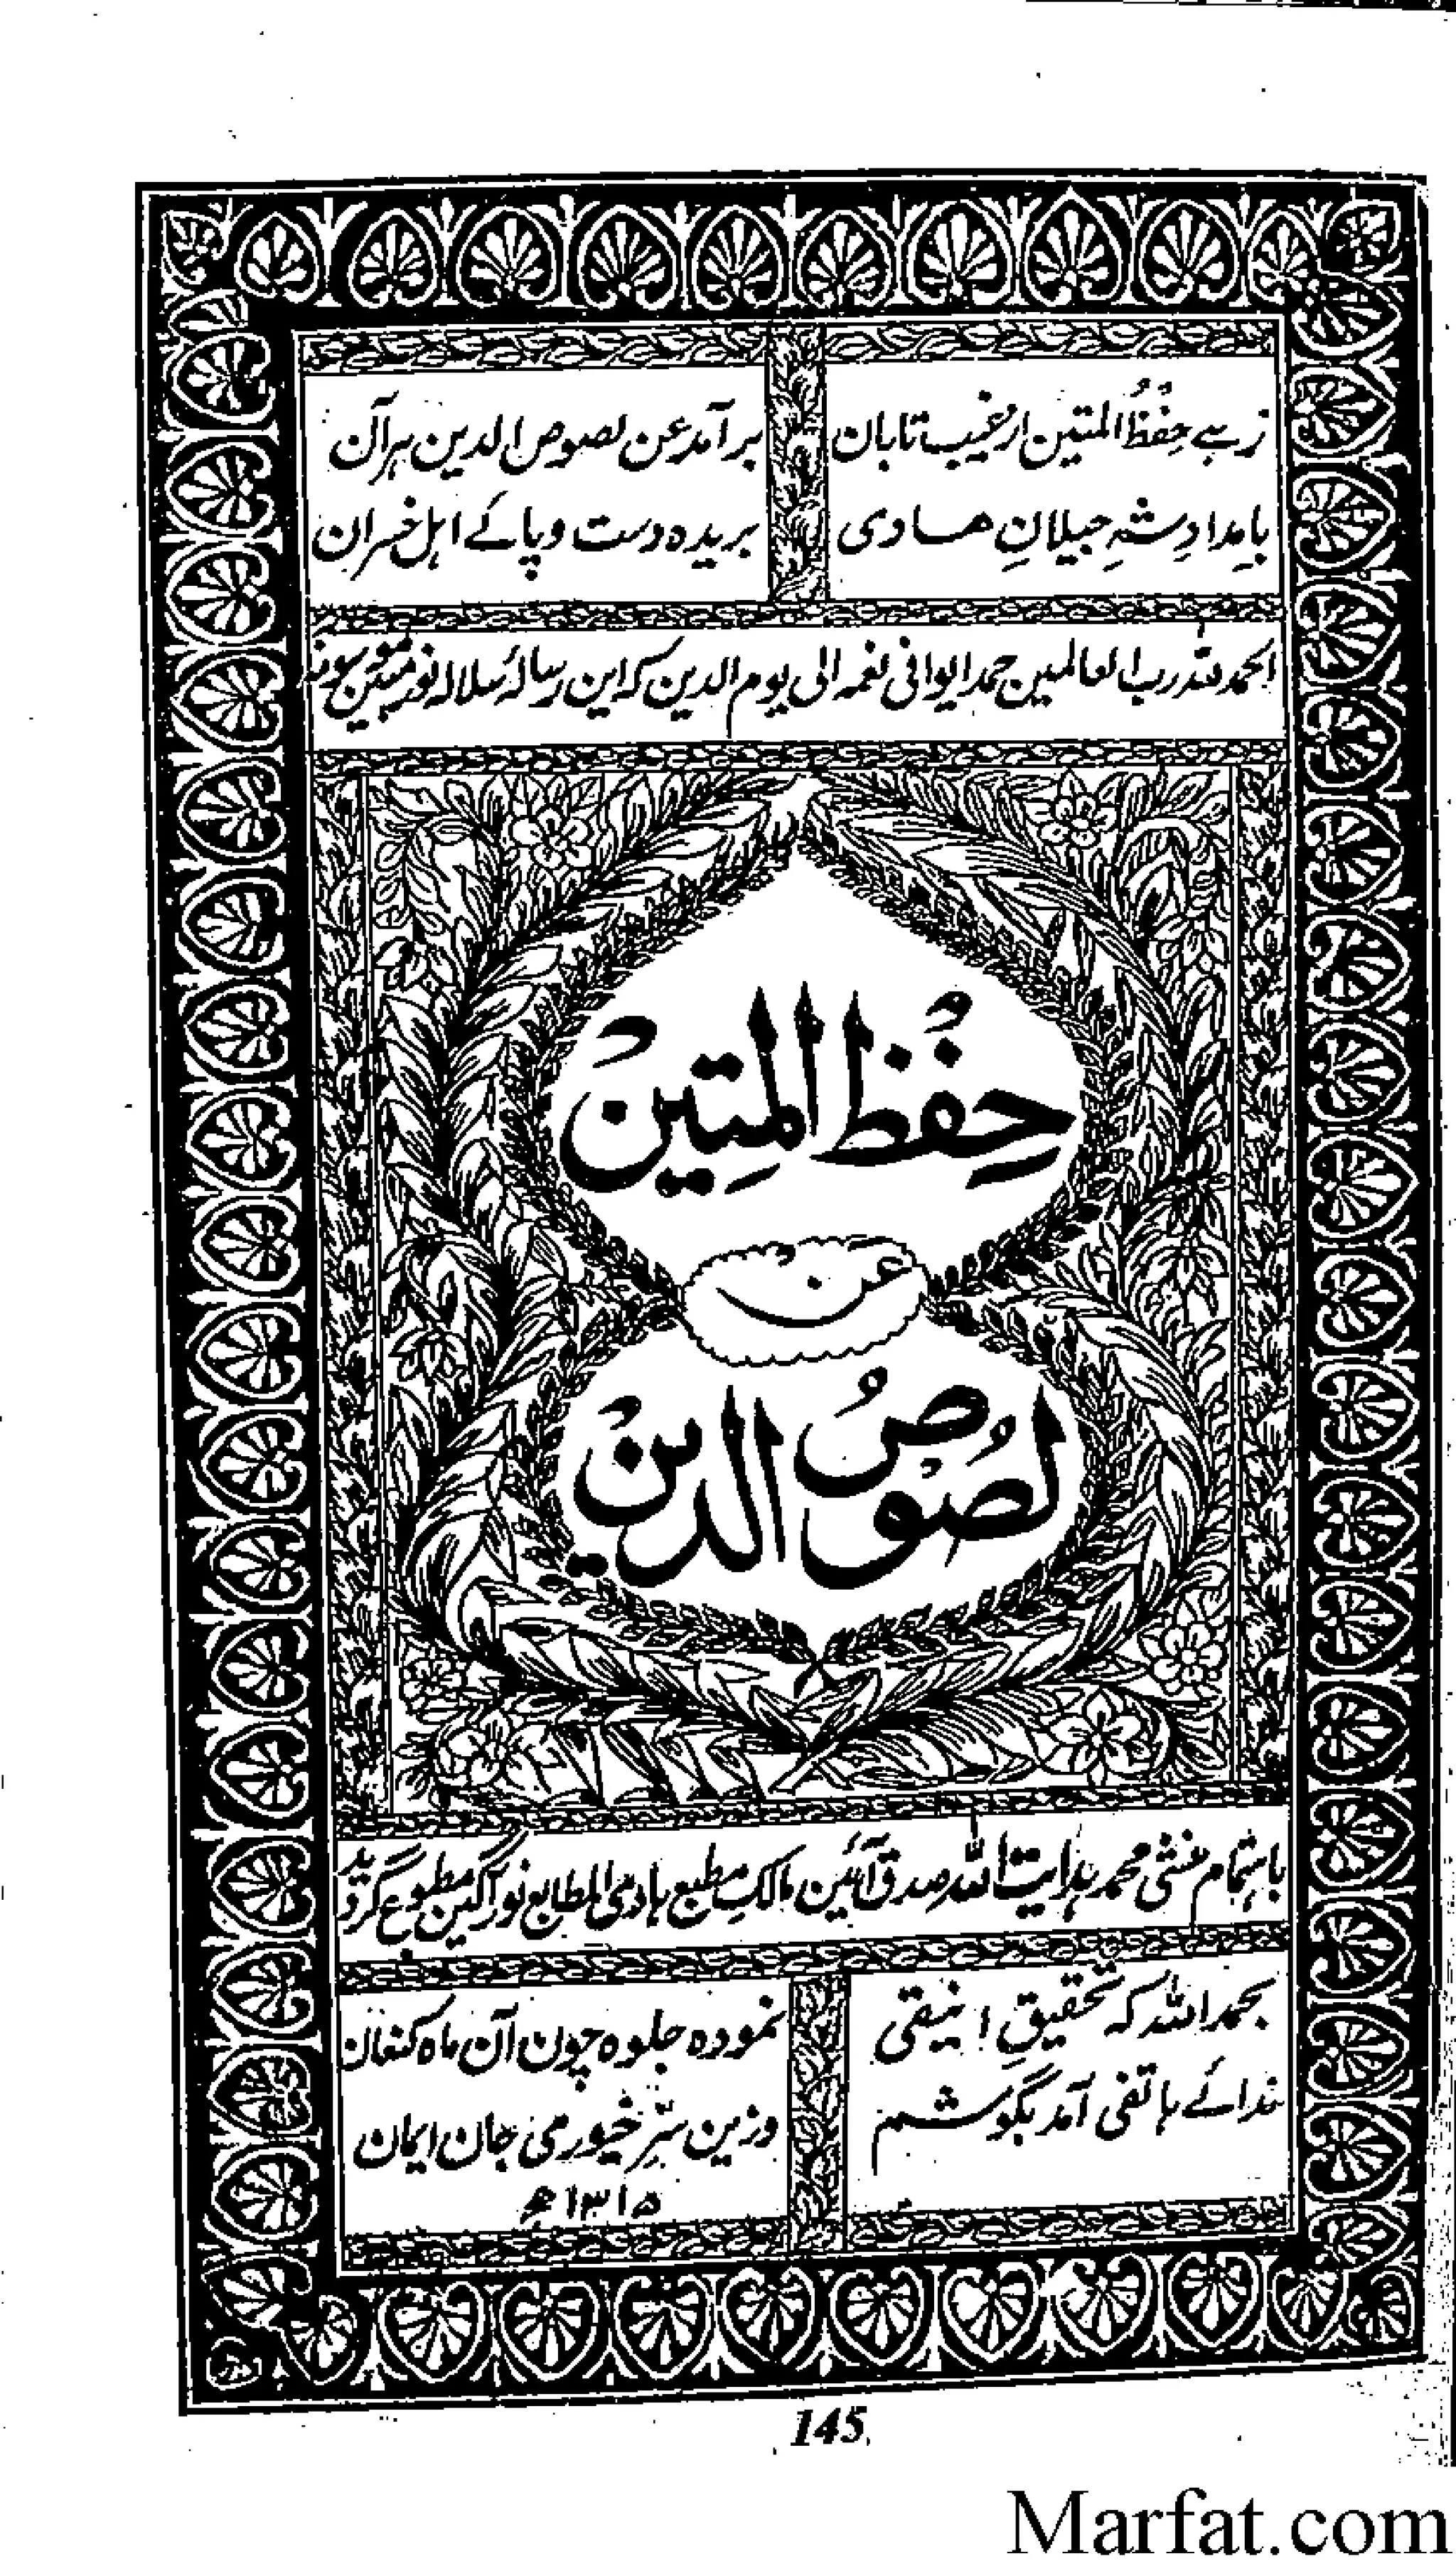 زہے حِفْظُ المتین از غیب تاباں برآمد عن لصوص الدین ہر آن
بامدادِ شہِ جیلانِ ھادی بریدہ دست و پاے اہل خسران
الحمد للہ رب العالمین حمدا یوافی نعمہ الی یوم الدین کہ این رسالہ سلالہ نور مبین
حِفْظُ المتِینْ
عن
لصُوصُ الدینْ
باہتمام منشی محمد ہدایت اللہ صدق آئین مالک مطبع ہادی المطابع نور آگین مطبوع گردید
بحمد اللہ کہ تحقیقِ انیقی نمودہ جلوہ چون آن ماہ کنعان
نداے ہاتفی آمد بگوشم وزین سِرّ خیوری جان ایمان
۱۳۱۵ھ
145
Marfat.com